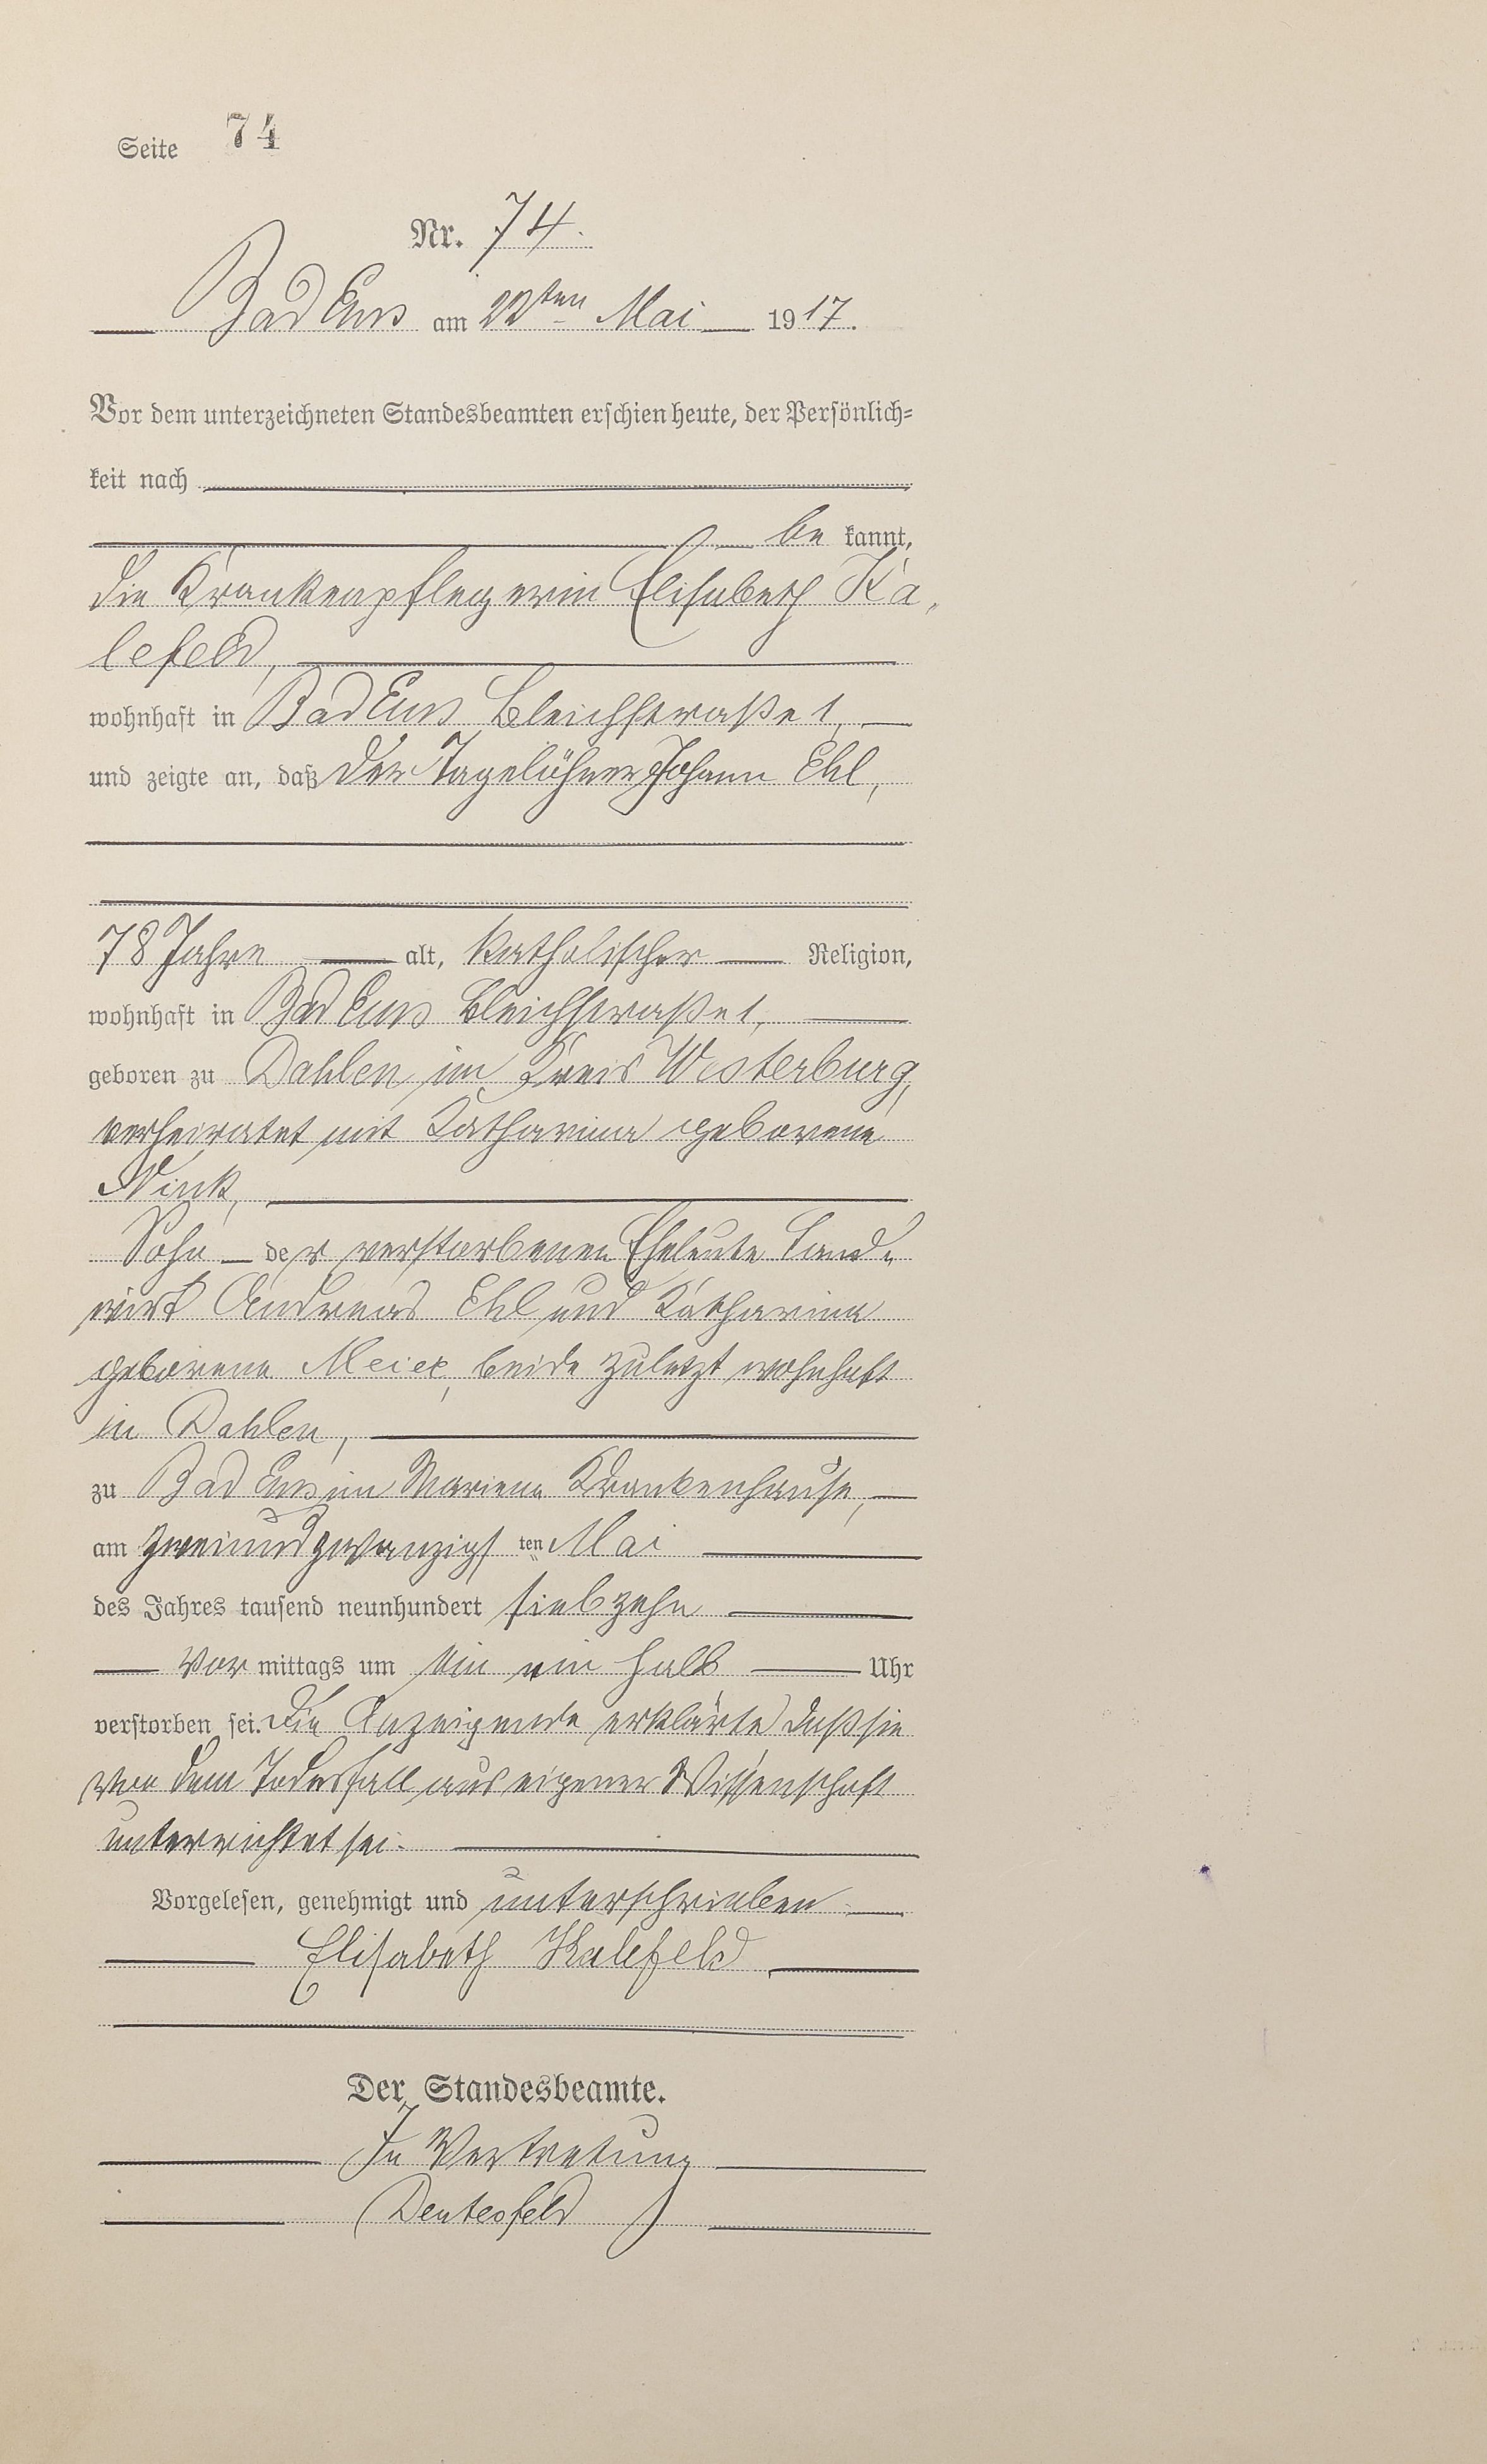 Seite 74
Nr. 74.
Bad Ems am 22ten Mai 1917.
Vor dem unterzeichneten Standesbeamten erschien heute, der Persönlich=
keit nach
be kannt,
die Krankenpflegerin Elisabeth Ka„
lefeld,
wohnhaft in Bad Ems Bleichstraße 1,
und zeigte an, daß der Tagelöhner Johann Ehl,
78 Jahre alt, katholischer Religion,
wohnhaft in Bad Ems Bleichstraße 1,
geboren zu Dahlen im Kreis Westerburg,
verheiratet mit Katharina geborene
Nink,
Sohn der verstorbenen Eheleute Land„
wirt Andreas Ehl und Katharina
geborene Meier, beide zuletzt wohnhaft
in Dahlen,
zu Bad Ems im Marien Krankenhause,
am zweiundzwanzigsten Mai
des Jahres tausend neunhundert siebzehn
Vor mittags um ein ein halb Uhr
verstorben sei. Die Anzeigende erklärte daß sie
von dem Todesfall aus eigener Wissenschaft
unterrichtet sei.
Vorgelesen, genehmigt und unterschrieben
Elisabeth Kalefeld
Der Standesbeamte.
In Vertretung